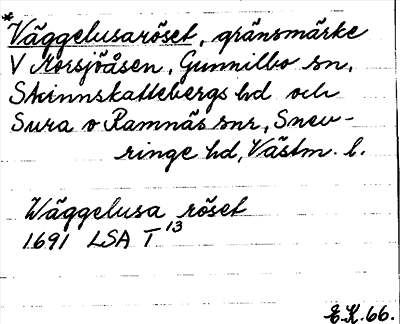 *Väggelusaröset, gränsmärke
V Korsjöåsen, Gunnilbo sn,
Skinnskattebergs hd och
Sura o Ramnäs snr, Snev-
ringe hd, Västm. l.
Wäggelusa röset
1691 LSA T 13
E.K. 66.